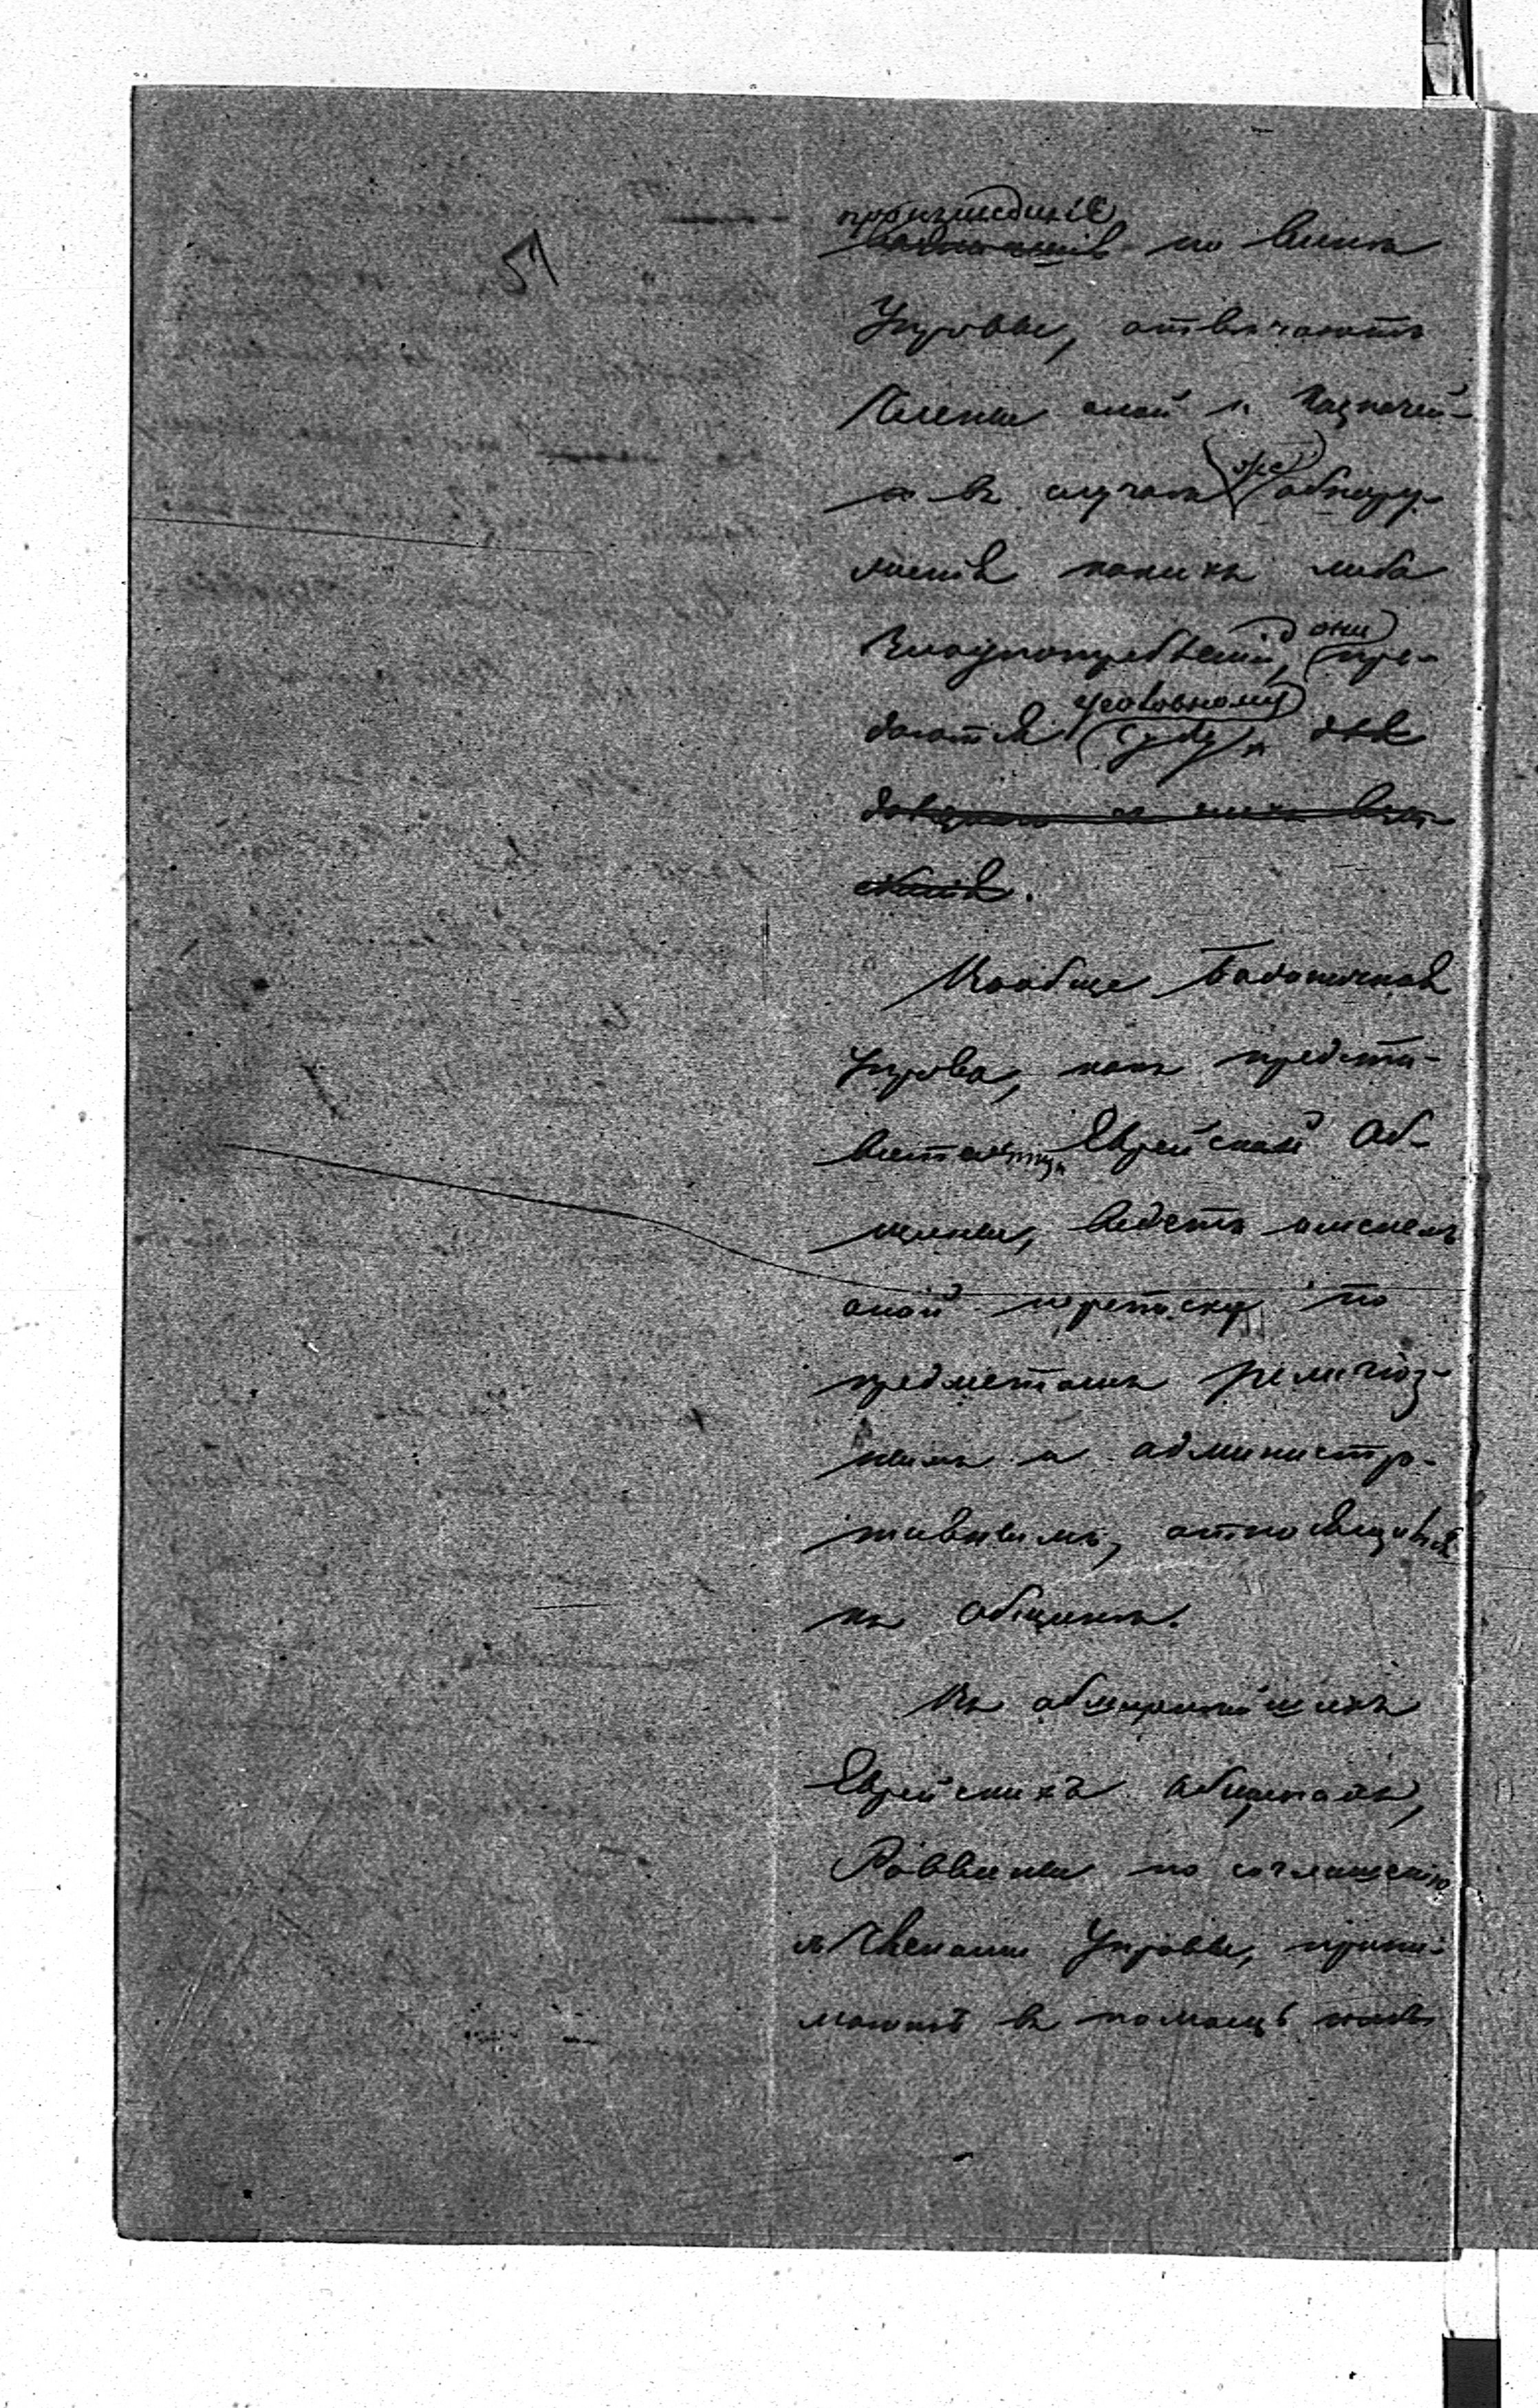 51
происшедшiя
по винѣ
Управы, отвѣчаютъ
Члены оной и Казначей
въ случаѣ же обнару-
женiя какихъ либо
злоупотребленiй, они пре-
даются уголовному суду
Вообще
Управа, какъ предста-
вительница Еврейской Об-
щины, ведетъ
оной переписку по
предметамъ религiоз-
нымъ и администра-
тивнымъ, относящимся
къ общинѣ.
Въ обширнѣйшихъ
Еврейскихъ общинахъ,
Раввины по соглашенiю
съ Членами Управы, прини-
маютъ въ помощь